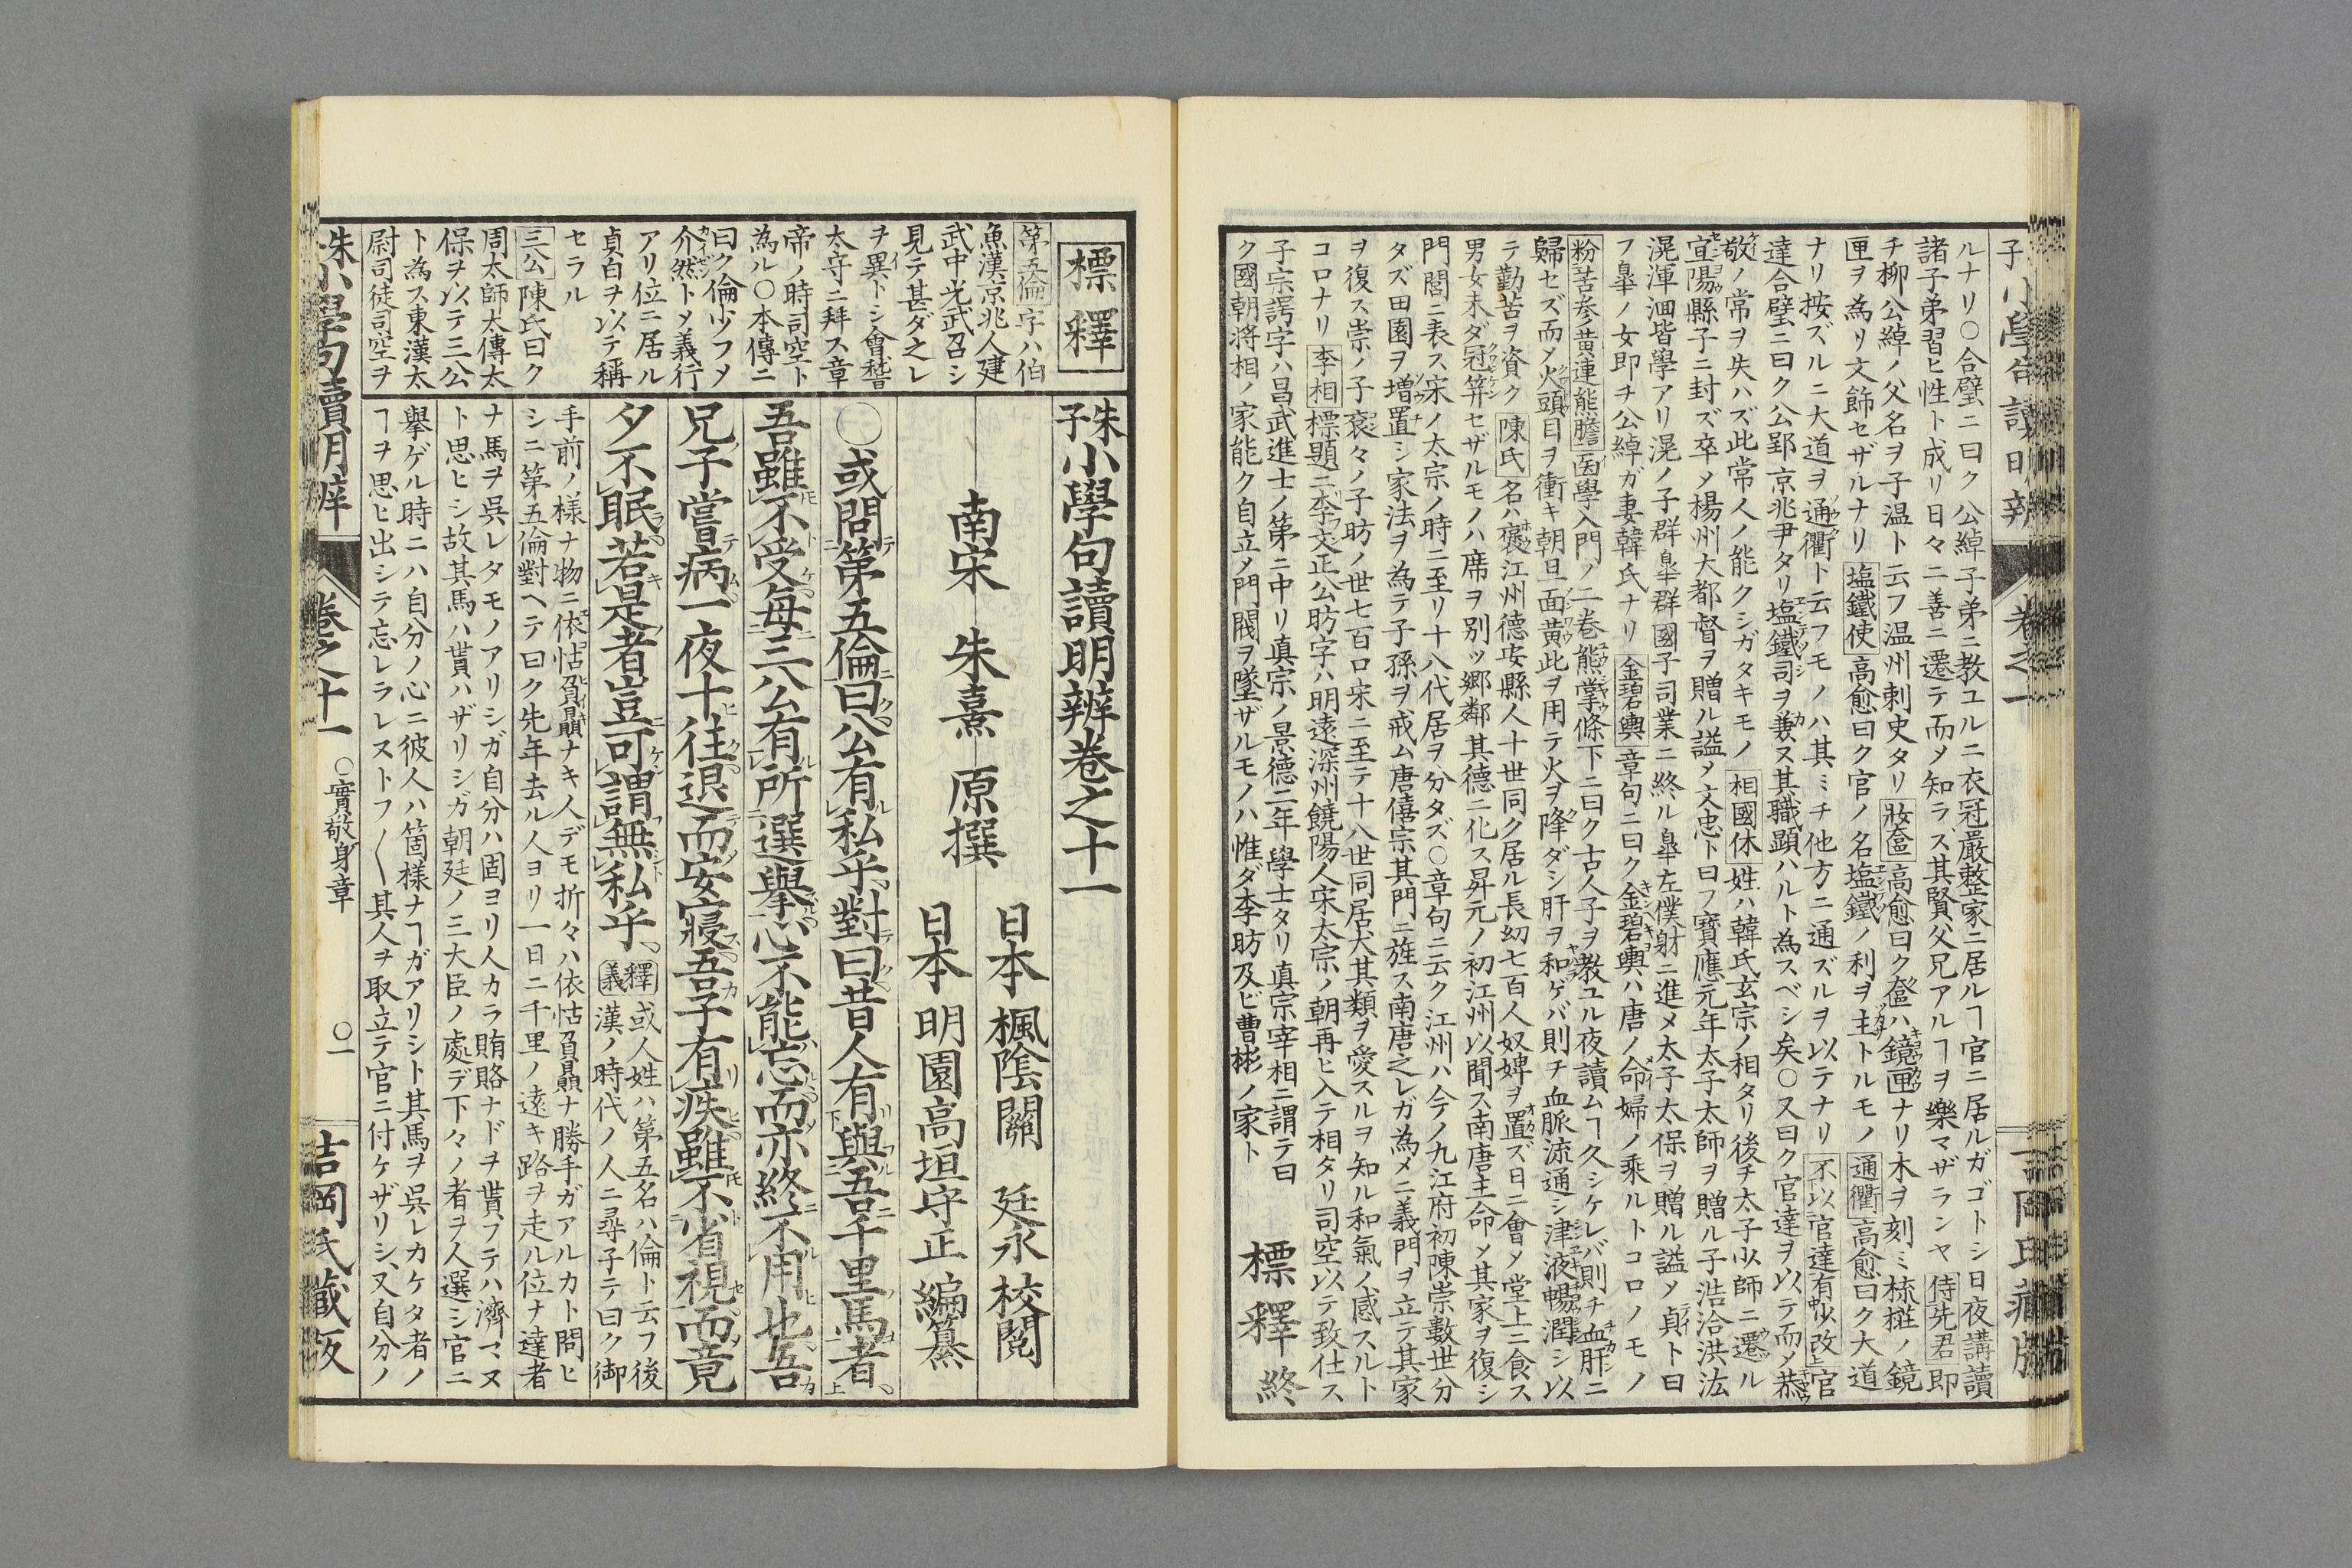 ルナリ〇合璧ニ曰ク公綽子弟ニ教ユルニ衣冠嚴整家ニ居ルヿ官ニ居ルガゴトシ日夜講讀
諸子弟習ヒ性ト成リ日々ニ善ニ遷テ而メ知ラズ其賢父兄アルヿヲ樂マザランヤ侍先君即
チ柳公綽ノ父名ヲ子温ト云フ温州刺史タリ妝奩高愈曰ク奩ハ鏡匣ナリ木ヲ刻ミ梳櫳ノ鏡
匣ヲ為リ文飾セザルナリ塩鐵使高愈曰ク官ノ名塩鐵ノ利ヲ主トルモノ通衢高愈曰ク大道
ナリ按ズルニ大道ヲ通衢ト云フモノハ其ミチ他方ニ通ズルヲ以テナリ不以官達有少改官
達合璧ニ曰ク公郢京兆尹タリ塩鐵司ヲ兼ヌ其職顕ハルト為スベシ矣〇又曰ク官達ヲ以テ而メ恭
敬ノ常ヲ失ハズ此常人ノ能クシガタキモノ相國休姓ハ韓氏玄宗ノ相タリ後チ太子少師ニ遷ル
宜陽縣子ニ封ズ卒メ楊州大都督ヲ贈ル謚メ文忠ト曰フ寶應元年太子太師ヲ贈ル子浩洽洪汯
滉渾洄皆學アリ滉ノ子群皐群國子司業ニ終ル皐左僕射ニ進メ太子太保ヲ贈ル謚ソ貞ト曰
フ皐ノ女即ヲ公綽ガ妻韓氏ナリ金碧輿章句ニ曰ク金碧輿ハ唐ノ命婦ノ乘ルトコロノモノ
粉苦参黄連熊膽医學入門ノ二巻熊掌條下ニ曰ク古人子ヲ教ユル夜讀ムヿ久シケレバ則チ血肝ニ
歸セズ而メ火頭目ヲ衝キ朝旦面黄此ヲ用テ火ヲ降ダシ肝ヲ和ゲバ則チ血脈流通シ津液暢潤シ以
テ勤苦ヲ資ク陳氏名ハ褒江州德安縣人十世同ク居ル長幼七百人奴婢ヲ置ズ日ニ會メ堂上ニ食ス
男女未ダ冠筓セザルモノハ席ヲ別ッ郷鄰其德ニ化ス昇元ノ初江州以聞ス南唐主命メ其家ヲ復シ
門閭ニ表ス宋ノ太宗ノ時ニ至リ十八代居ヲ分タズ〇章句ニ云ク江州ハ今ノ九江府初陳崇數世分
タズ田園ヲ増置シ家法ヲ為テ子孫ヲ戒ム唐僖宗其門ニ旌ス南唐之レガ為メニ義門ヲ立テ其家
ヲ復ス崇ノ子衮々ノ子昉ノ世七百口宋ニ至テ十八世同居犬其類ヲ愛スルヲ知ル和氣ノ感スルト
コロナリ李相標題ニ李文正公昉字ハ明遠深州饒陽人宋太宗ノ朝再ヒ入テ相タリ司空以テ致仕ス
子宗諤字ハ昌武進士ノ第ニ中リ真宗ノ景德二年學士タリ真宗宰相ニ謂テ曰
ク國朝將相ノ家能ク自立メ門閥ヲ墜ザルモノハ惟ダ李昉及ビ曹彬ノ家ト
標釋終
標釋
第五倫字ハ伯
魚漢京兆人建
武中光武召シ
見テ甚ダ之レ
ヲ異トシ會稽
太守ニ拜ス章
帝ノ時司空ト
為ル〇本傳ニ
曰ク倫少フメ
介然トメ義行
アリ位ニ居ル
貞白ヲ以テ稱
セラル
三公陳氏曰ク
周太師太傳太
保ヲ以テ三公
ト為ス東漢太
尉司徒司空ヲ
朱子小學句讀明辨卷之十一
日本 楓陰關 廷永 校閲
南宋 朱熹 原撰
日本 明園高垣守正 編纂
〇或問第五倫曰公有私乎對曰昔人有與吾千里馬者
吾雖不受每三公有所選擧心不能忘而亦終不用也吾
兄子嘗病一夜十往退而安寢吾子有疾雖不省視而竟
夕不眠若是者豈可謂無私乎
釋義 或人姓ハ第五名ハ倫ト云フ後
漢ノ時代ノ人ニ尋子テ曰ク御
手前ノ樣ナ物ニ依怙贔屓ナキ人デモ折々ハ依怙贔屓ナ勝手ガアルカト問ヒ
シニ第五倫對ヘテ曰ク先年去ル人ヨリ一日ニ千里ノ遠キ路ヲ走ル位ナ達者
ナ馬ヲ呉レタモノアリシガ自分ハ固ヨリ人カラ賄賂ナドヲ貰フテハ濟マヌ
ト思ヒシ故其馬ハ貰ハザリシガ朝廷ノ三大臣ノ處デ下々ノ者ヲ人選シ官ニ
擧ゲル時ニハ自分ノ心ニ彼人ハ箇樣ナヿガアリシト其馬ヲ呉レカケタ者ノ
ヿヲ思ヒ出シテ忘レラレヌトフ〱其人ヲ取立テ官ニ付ケザリシ又自分ノ
小學句讀明辨 卷之十一 〇實敬身章 〇一 吉岡氏藏版